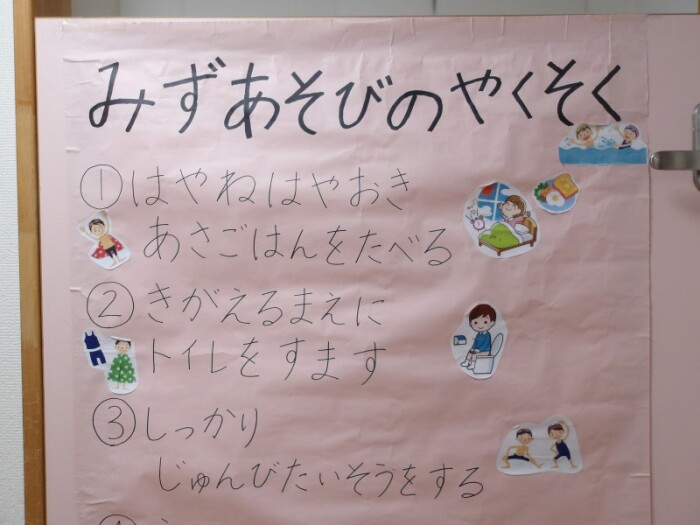 みずあそびのやくそく
①はやねはやおき
あさごはんをたべる
②きがえるまえに
トイレをすます
③しっかり
じゅんびたいそうをする